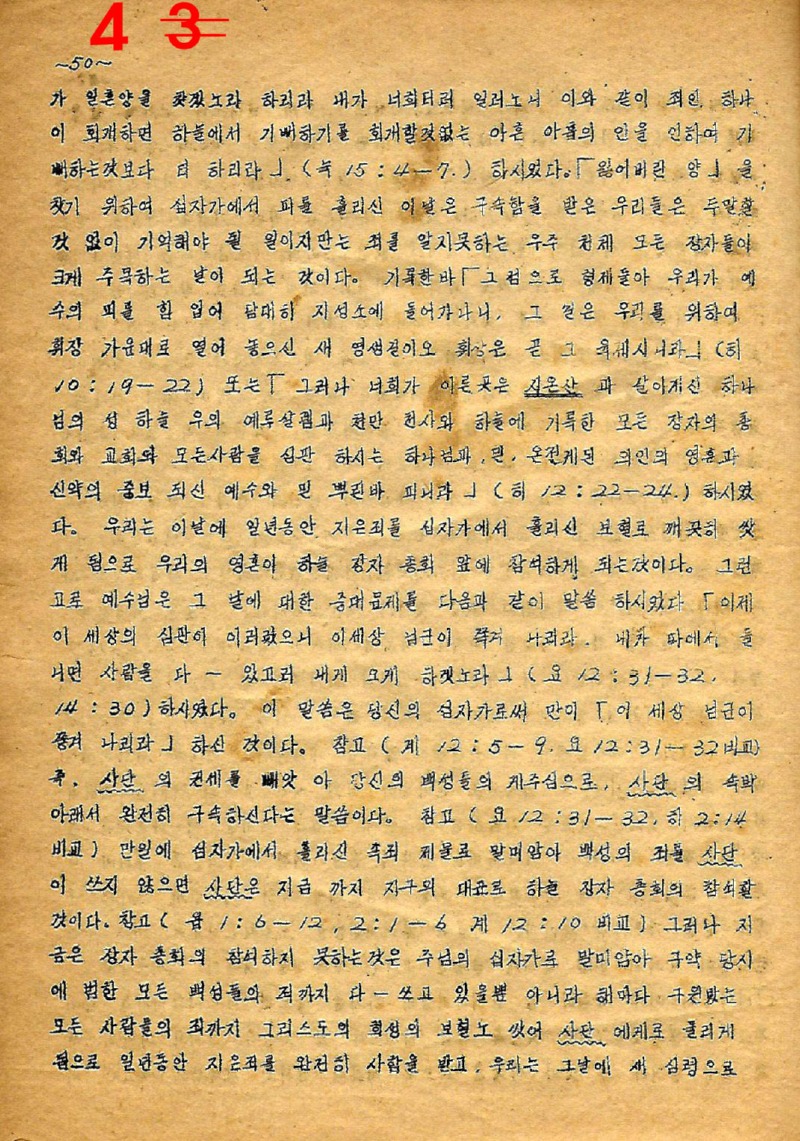 4 3
~50~
가 잃은양을 찾았노라 하리라 내가 너희더러 일러노니 이와 같이 죄인 하나
이 회개하면 하늘에서 기뻐하기를 회개할것없는 아흔 아홉의 인을 인하여 기
뻐하는것보다 더 하리라」 (눅 15 : 4—7.) 하시였다.「잃어버린 양」을
찾기 위하여 십자가에서 피를 흘리신 이날은 구속함을 받은 우리들은 두말할
것 없이 기억해야 될 일이지만는 죄를 알지못하는 우주 전체 모든 장자들이
크게 주목하는 날이 되는 것이다. 기록한바「그럼으로 형제들아 우리가 예
수의 피를 힘 입어 담대히 지성소에 들어가나니, 그 길은 우리를 위하여
휘장 가운대로 열어 놓으신 새 영생길이오 휘장은 곧 그 육체시니라」(히
10 : 19—22) 또는「그러나 너희가 이른곳은 시온산 과 살아계신 하나
님의 성 하늘 우의 예루살렘과 천만 천사와 하늘에 기록한 모든 장자의 총
회와 교회와 모든사람을 심판 하시는 하나님과, 및, 온전케된 의인의 영혼과
신약의 중보 되신 예수와 및 뿌린바 피니라」(히 12 : 22—24.) 하시였
다. 우리는 이날에 일년동안 지은죄를 십자가에서 흘리신 보혈로 깨끗히 씻
게 됨으로 우리의 영혼이 하늘 장자 총회 앞에 참석하게 되는것이다. 그런
고로 예수님은 그 날에 대한 중대문제를 다음과 같이 말씀 하시였다 「이제
이 세상의 심판이 이러렀으니 이세상 님군이 쫓겨 나리라. 내가 따에서 들
니면 사람을 다 — 있끄러 내게 오게 하겟노라」(요 12 : 31—32,
14 : 30) 하시였다. 이 말씀은 당신의 십자가로써 만이「이 세상 님군이
쫓겨 나리라」하신 것이다. 참고 (계 12 : 5—9. 요 12 : 31—32비교)
즉, 사단 의 권세를 빼앗 아 당신의 백성들의게주심으로, 사단 의 속박
아래서 완전히 구속하신다는 말씀이다. 참고 (요 12 : 31—32, 히 2:14
비교) 만일에 십자가에서 흘리신 속죄 제물로 말미암아 백성의 죄를 사단
이 쓰지 않으면 사단은 지금 까지 지구의 대표로 하늘 장자 총회의 참석할
것이다. 참고 (욥 1 : 6—12, 2 : 1—6 계 12 : 10 비교) 그러나 지
금은 장자 총회의 참석하지 못하는것은 주님의 십자가로 말미암아 구약 당시
에 범한 모든 백성들의 죄까지 다—쓰고 있을뿐 아니라 해마다 구원받는
모든 사람들의 죄까지 그리스도의 희생의 보혈노 씻어 사단 에게로 돌리게
됨으로 일년동안 지은죄를 완전히 사함을 받고, 우리는 그날에 새 심령으로